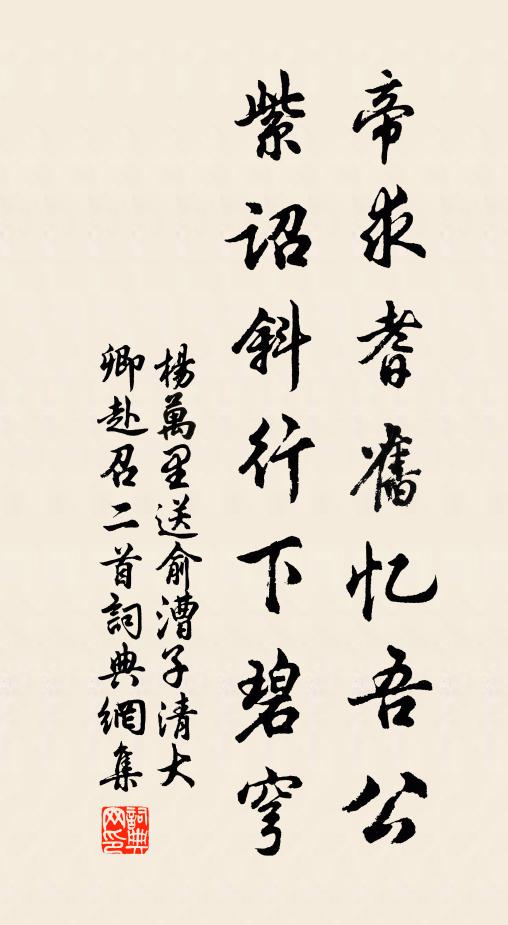 帝求耆舊忆吾公
紫诏斜行下碧穹
楊萬里送俞漕子清大
卿赴召二首詞典網集
詞典网印